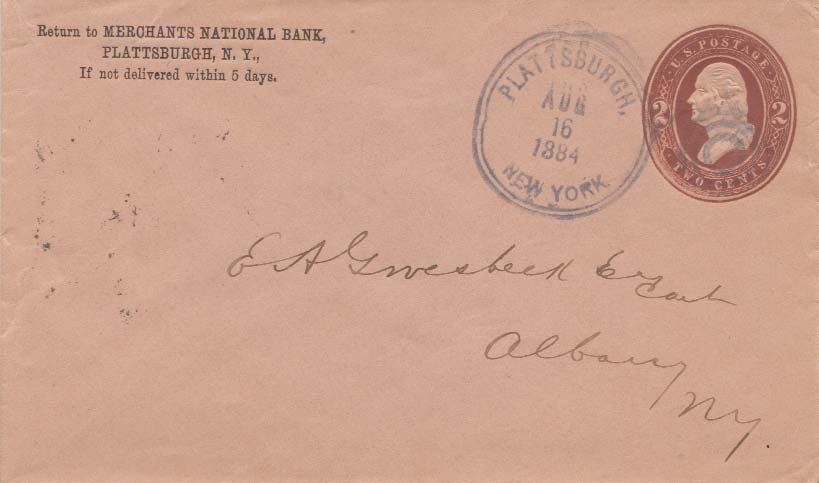 Return to MERCHANTS NATIONAL BANK,
PLATTSBURGH, N. Y.,
If not delivered within 5 days.
PLATTSBURGH,
AUG
16
1884
NEW YORK
U.S. POSTAGE
2 2
TWO CENTS
E A
Albany
NY.